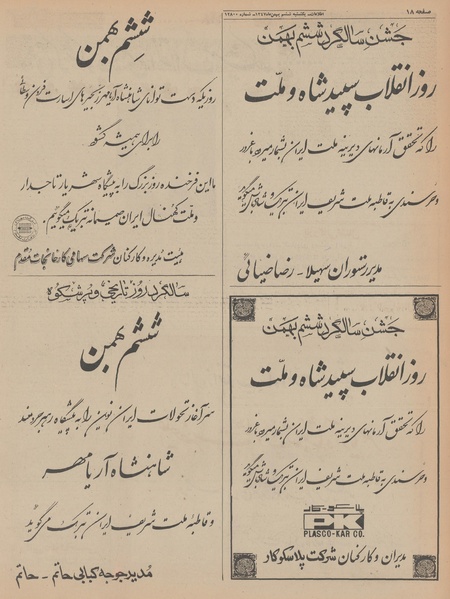 صفحه ۱۸
اطلاعات - یکشنبه ششم بهمن ماه ۱۳۴۷ - شماره ۱۲۸۰۰
جشن سالگرد ششم بهمن
روز انقلاب سپید شاه و ملت
را که تحقق آرمانهای دیرینه ملت ایران بشمار میرود با غرور
و خرسندی به قاطبه ملت شریف ایران تبریک و شادباش میگوید
مدیر رستوران سهیلا - رضا ضیائی
جشن سالگرد ششم بهمن
روز انقلاب سپید شاه و ملت
را که تحقق آرمانهای دیرینه ملت ایران بشمار میرود با غرور
و خرسندی به قاطبه ملت شریف ایران تبریک و شادباش میگوید
پلاسکو کار
PK
PLASCO-KAR CO.
مدیران و کارکنان شرکت پلاسکوکار
ششم بهمن
روزیکه دست توانای شاهنشاه آریامهر زنجیرهای اسارت را از
برای همیشه گشود
ما این فرخنده روز بزرگ را به پیشگاه شهریار تاجدار
و ملت کهنسال ایران صمیمانه تبریک میگوئیم.
هیئت مدیره و کارکنان شرکت سهامی کارخانجات مقدم
سالگرد روز تاریخی و پرشکوه
ششم بهمن
سرآغاز تحولات ایران نوین را به پیشگاه رهبر خردمند
شاهنشاه آریامهر
و قاطبه ملت شریف ایران تبریک می گوید
مدیر جوجه کبابی حاتم - حاتم